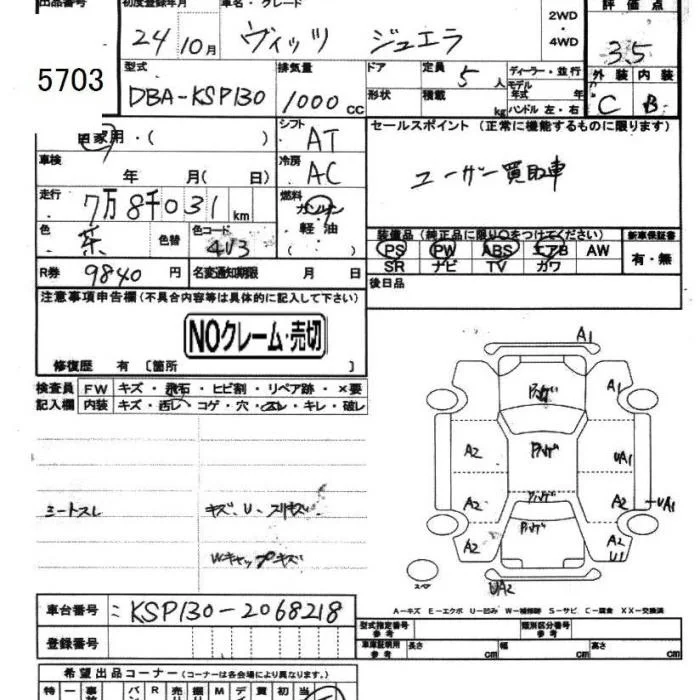 出品番号 初度登録年月 車名・グレード 評価点
5703 24年10月 ヴィッツ ジュエラ 2WD・4WD 3.5
型式 排気量 ドア 定員 5人 ディーラー・並行 外装 内装
DBA-KSP130 1000cc 形状 積載 kg モデル年式 年 ハンドル 左・右 C B
自家用・( ) シフト AT セールスポイント (正常に機能するものに限ります)
車検 年 月( 日) 冷房 AC ユーザー買取車
走行 7万8千031km 燃料 ガソリン
軽油
( )
色 茶 色替 色コード 4V3 装備品(純正品に限り○をつけてください) 新車保証書
PS PW ABS エアB AW 有・無
R券 9840円 名変通知期限 月 日 SR ナビ TV カワ
注意事項申告欄(不具合内容等は具体的に記入して下さい) 後日品
NOクレーム・売切
修復歴 有〔箇所 〕
検査員 FW キズ・飛石・ヒビ割・リペア跡・×要
記入欄 内装 キズ・汚レ・コゲ・穴・スレ・キレ・破レ
A1
A1
A2 UA1
A2 A2 UA1
A2 A2
U1
シートスレ キズ、U、スリキズ
Wキャップキズ
スペア UA2
A-キズ E-エクボ U-凹み W-補修跡 S-サビ C-腐食 XX-交換済
車台番号 : KSP130-2068218
登録番号
型式指定番号 参考 類別区分番号 参考
車庫証明用 参考 長さ cm 幅 cm 高さ cm
希望出品コーナー(コーナーは各会場により異なります。)